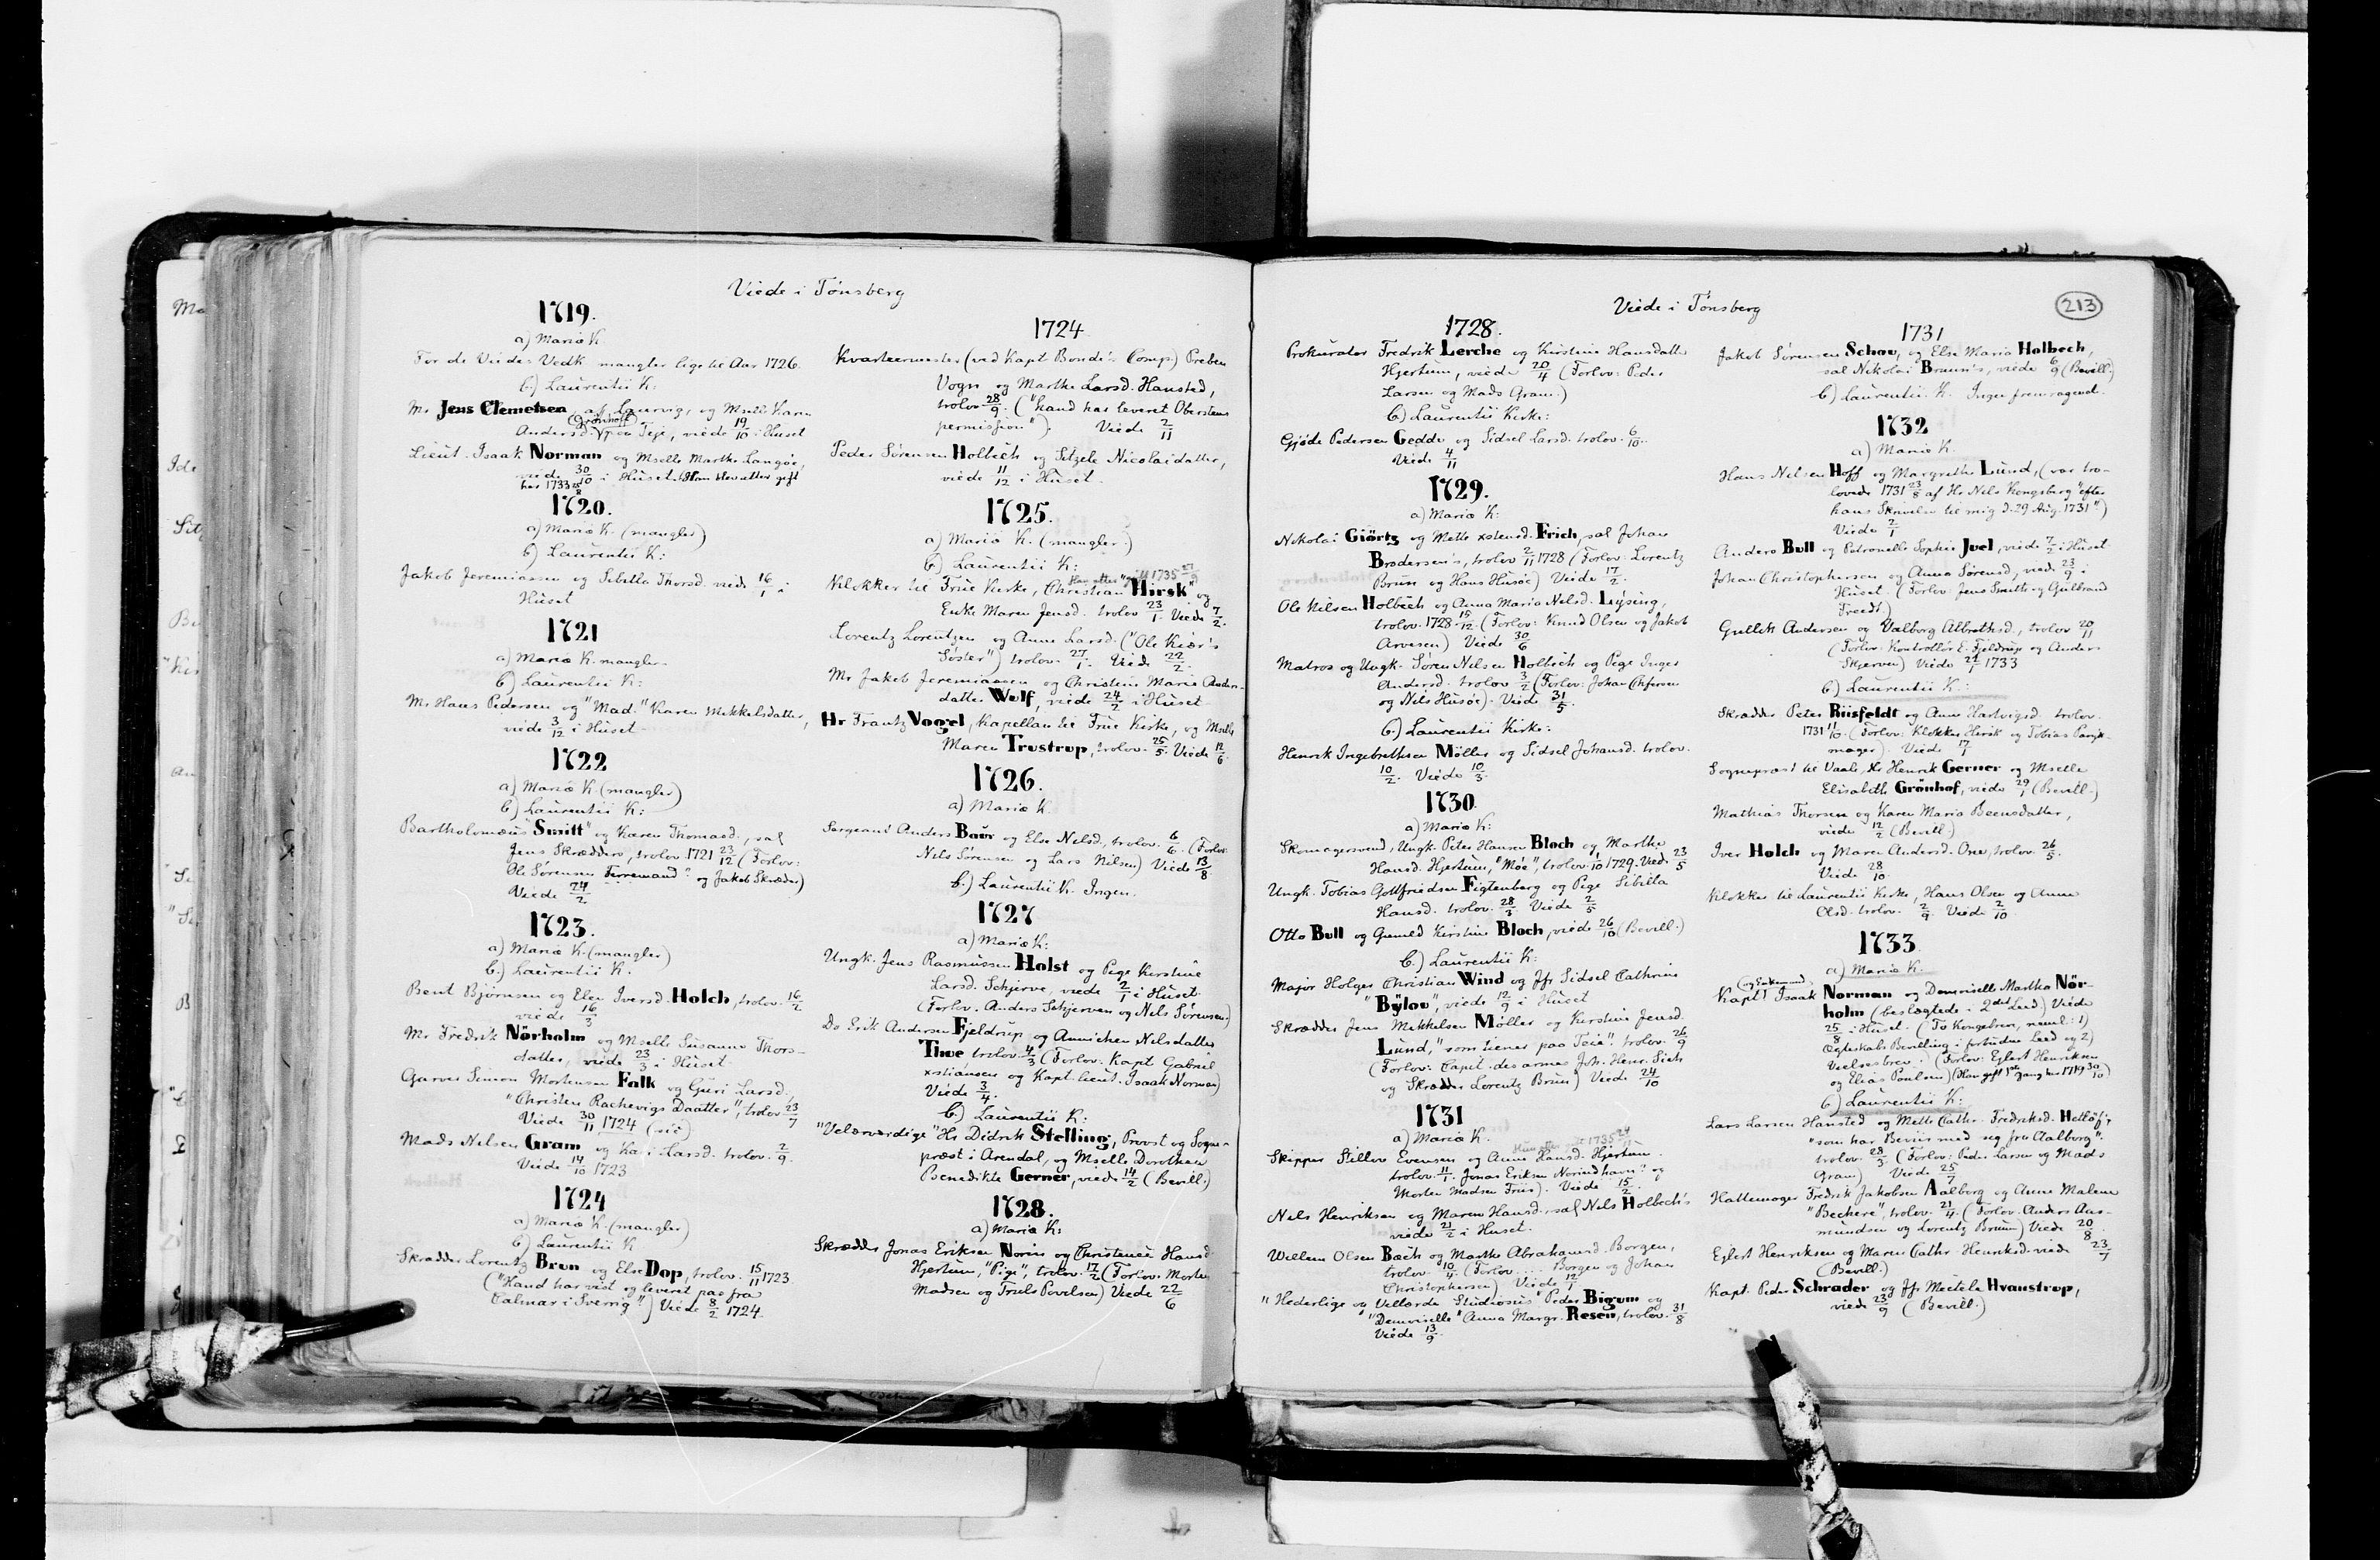 Viede i Tønsberg
1719.
a) Mariæ K.
For de Viedes Vedk. mangler lige til Aar 1726.
b.) Laurentii K:
Mr Jens Clemetsen, af Laurvig, og Mselle Karen
Grönhoff
Andersd. paa Teje, viede 19/10 i Huset
Lieut. Isaak Norman og Mselle Marthe Langöe,
viede 30/10 i Huset. (Han blev atter gift
her 1733 25/8
1720.
a) Mariæ K. (mangler)
b) Laurentii K:
Jakob Jeremiassen og Sibilla Thorsd. viede 16/1 i
Huset
1721
a) Mariæ K. mangler
b) Laurentii K:
Mr Hans Pedersen og "Mad." Karen Mikkelsdatter,
viede 3/12 i Huset
1722
a) Mariæ K. (mangler)
b) Laurentii K:
Bartholomæus "Smitt" og Karen Thomasd., sal
Jens Skrædders, trolov. 1721 23/12 (Forlov:
Ole Sørensen Ferremand? og Jakob Skræder)
Viede 24/2
1723.
a) Mariæ K. (mangler)
b.) Laurentii K.
Bent Bjørnsen og Elen Iversd. Holch, trolov. 16/2
viede 16/3
Mr Fredrik Nörholm og Mselle Susanne Thors-
datter, viede 23/3 i Huset
Garver Simon Mortensen Falk og Guri Larsd,
"Christen Rachevigs Daatter", trolov 23/7
Viede 30/11 1724 (sic)
Mads Nelsen Gram og Kari Larsd. trolov. 2/9.
Viede 14/10 1723
1724
a) Mariæ K. (mangler)
b) Laurentii K
Skrædder Lorentz Brun og Else Dop, trolov. 15/11 1723
("Hand har vist og leveret pas fra
Calmar i Sverrig") Viede 8/2 1724.
1724
Kvarteermester (ved Kapt. Bonde's Comp.) Preben
Vogn og Marthe Larsd. Hansted,
trolov 28/9. ("hand har leveret Oberstens
permission"). Viede 2/11
Peder Sørensen Holbech og Sitzele Nicolaidatter,
viede 11/12 i Huset.
1725.
a) Mariæ K. (mangler.)
b) Laurentii K:
Han atter gift 1735 27/9
Klokker til Frue Kirke, Christian "Hirsk" og
Enke Maren Jensd. trolov 23/1. Viede 7/2.
Lorentz Lorentzen og Anne Larsd. ("Ole Kiær's
Söster") trolov. 27/1. Viede 22/2.
Mr Jakob Jeremiassen og Christine Marie Anders-
datter Wulf, viede 24/2 i Huset
Hr Frantz Vogel, Kapellan til Frue Kirke, og Mselle
Maren Trustrup, trolov. 25/5. Viede 12/6.
1726.
a) Mariæ K
Sergeant Anders Baur og Else Nelsd., trolov. 6/6. (Forlov:
Nels Sørensen og Lars Nilsen) Viede 13/8
b.) Laurentii K. Ingen.
1727
a) Mariæ K:
Ungk. Jens Rasmussen Holst og Pige Kerstine
Larsd. Schjerve, viede 2/1 i Huset
(Forlov. Anders Schjerven og Nels Sörensen)
Do Erik Andersen Fjeldrup og Annichen Nelsdatter
Thue trolov. 4/3 (Forlov: Kapt Gabriel
xstiansen og Kapt. lieut. Isaak Norman)
Viede 3/4.
b.) Laurentii K:
"Velærværdige" Hr Didrik Stelling, Provst og Sogne-
præst i Arendal, og Mselle Dorothea
Benedikte Gerner, viede 14/2 (Bevill.)
1728.
a) Mariæ K:
Skrædder Jonas Eriksen Noring og Christence Hansd.
Hjertum, "Pige", trolov. 17/2 (Forlov. Morten
Madsen og Truls Povelsen) Viede 22/6
Viede i Tønsberg
213
1728.
Prokurator Fredrik Lerche og Kirstine Hansdatter
Hjertum, viede 20/4 (Forlov: Peder
Larsen og Mads Gram.)
b) Laurentii Kirke:
Gjöde Pedersen Gedde og Sidsel Larsd. trolov. 6/10.
Viede 4/11
1729.
a) Mariæ K:
Nikolai Giörtz og Mette xstensd. Frich, sal Johan
Brodersen's, trolov 2/11 1728 (Forlov: Lorentz
Brun og Hans Husöe) Viede 17/2.
Ole Nilsen Holbech og Anna Maria Nelsd. Lysing,
trolov. 1728 15/12. (Forlov: Knud Olsen og Jakob
Arvesen) Viede 30/6
Matros og Ungk. Søren Nilsen Holbech og Pige Inger
Andersd. trolov 3/2 (Forlov: Johan Chrfersen
og Nils Husöe). Viede 31/5.
b.) Laurentii Kirke:
Henrik Ingebrethsen Möller og Sidsel Johansd. trolov.
10/2. Viede 10/3.
1730.
a) Mariæ K:
Skomagersvend, Ungk. Peter Hansen Bloch og Marthe
Hansd. Hjertum, "Möe", trolov. 1/10 1729. Viede 23/5
Ungk. Tobias Gottfriedsen Figtenberg og Pige Sibilla
Hansd. trolov. 28/3 Viede 2/5
Otto Bull og Gunild Kirstine Bloch, viede 26/10 (Bevill.)
b.) Laurentii K:
Major Holger Christian Wind og Jfr Sidsel Cathrine
"Bÿlov", viede 12/9 i Huset
Skrædder Jens Mikkelsen Möller og Kirstine Jensd.
Lund, "som tiener paa Teie". trolov. 26/9
(Forlov: Capit. des armes Joh. Henr. Sieh
og Skrædder Lorentz Brun) Viede 24/10
1731
a) Mariæ K.
Hun atter gift 1735 24/11
Skipper Stillov Evensen og Anne Hansd. Hjertum.
trolov. 11/1. Jonas Eriksen Norindhavn? og
Morten Madsen Friis). Viede 15/2.
Nels Henriksen og Maren Hansd. sal Nels Holbech's
viede 21/2 i Huset.
Willem Olsen Bæch og Marthe Abrahamsd. Borgen,
trolov. 10/4. (Forlov .... Borgen og Johan
Christophersen) Viede 12/1
"Hæderlige og Vellærde Studiosus" Peder Bigum og
"Demoiselle" Anna Margr. Resen, trolov. 31/8
Viede 13/9.
1731
Jakob Sørensen Schou, og Else Maria Holbech,
sal Nikolai Bruun's, viede 6/9 (Bevill.)
b) Laurentii K. Ingen fremragend.
1732
a) Mariæ K.
Hans Nilsen Hoff og Margrethe Lund, (var tro-
lovede 1731 23/8 af Hr Nels Kongsberg "efter
hans Skrivelse til mig d. 29 Aug. 1731")
Viede 2/1
Anders Bull og Petronelle Sophie Juel, viede 7/2 i Huset
Johan Christophersen og Anna Sørensd, viede 23/9 i
Huset. (Forlov: Jens Smith og Gulbrand
Treedt)
Gullik Andersen og Valborg Albrethsd., trolov. 20/11
(Forlov: Kontrollör E. Fjeldrup og Anders
Skjerven) Viede 27/1 1733
b.) Laurentii K.:
Skrædder Peter Riisfeldt og Anne Hartvigsd. trolov.
1731 11/10. (Forlov: Klokker Hirsk og Tobias Paryk-
mager). Viede 17/1
Sognepræst til Vaale, Hr Henrik Gerner og Mselle
Elisabeth Grönhof, viede 29/1 (Bevill.)
Mathias Thorsen og Karen Maria Beensdatter,
viede 12/2 (Bevill)
Iver Holch og Maren Andersd. Oxe, trolov. 26/5.
Viede 28/10.
Klokker til Laurentii Kirke, Hans Olsen og Anne
Olsd. trolov. 2/9. Viede 2/10.
1733
a) Mariæ K.
og Enkemand
Kapt. Isaak Norman og Demoiselle Martha Nör-
holm (beslægtede i 2det Leed) Viede
25/8 i Huset. (To Kongebrev, neml: 1)
Ægteskabs Bevilling i forbudne Leed og 2)
Vielsesbrev. (Forlov: Eglert Henriksen
og Elias Poulsen) (Han gift 1ste Gang her 1719 30/10)
b) Laurentii K:
Lars Larsen Hansted og Mette Cathr. Fredriksd. Hetlöf,
"som har Beviis med seg fra Aalborg".
trolov. 28/3. (Forlov: Peder Larsen og Mads
Gram) Viede 25/7
Hattemager Fredrik Jakobsen Aalborg og Anne Malene
"Bechere", trolov. 21/4. (Forlov. Anders Aas-
mundsen og Lorentz Bruun) Viede 20/8
Eglert Henriksen og Maren Cathr. Henriksd. viede 23/7
(Bevill.)
Kapt. Peder Schrader og Jfr Mectele Hvanstrup,
viede 23/9 (Bevill.)